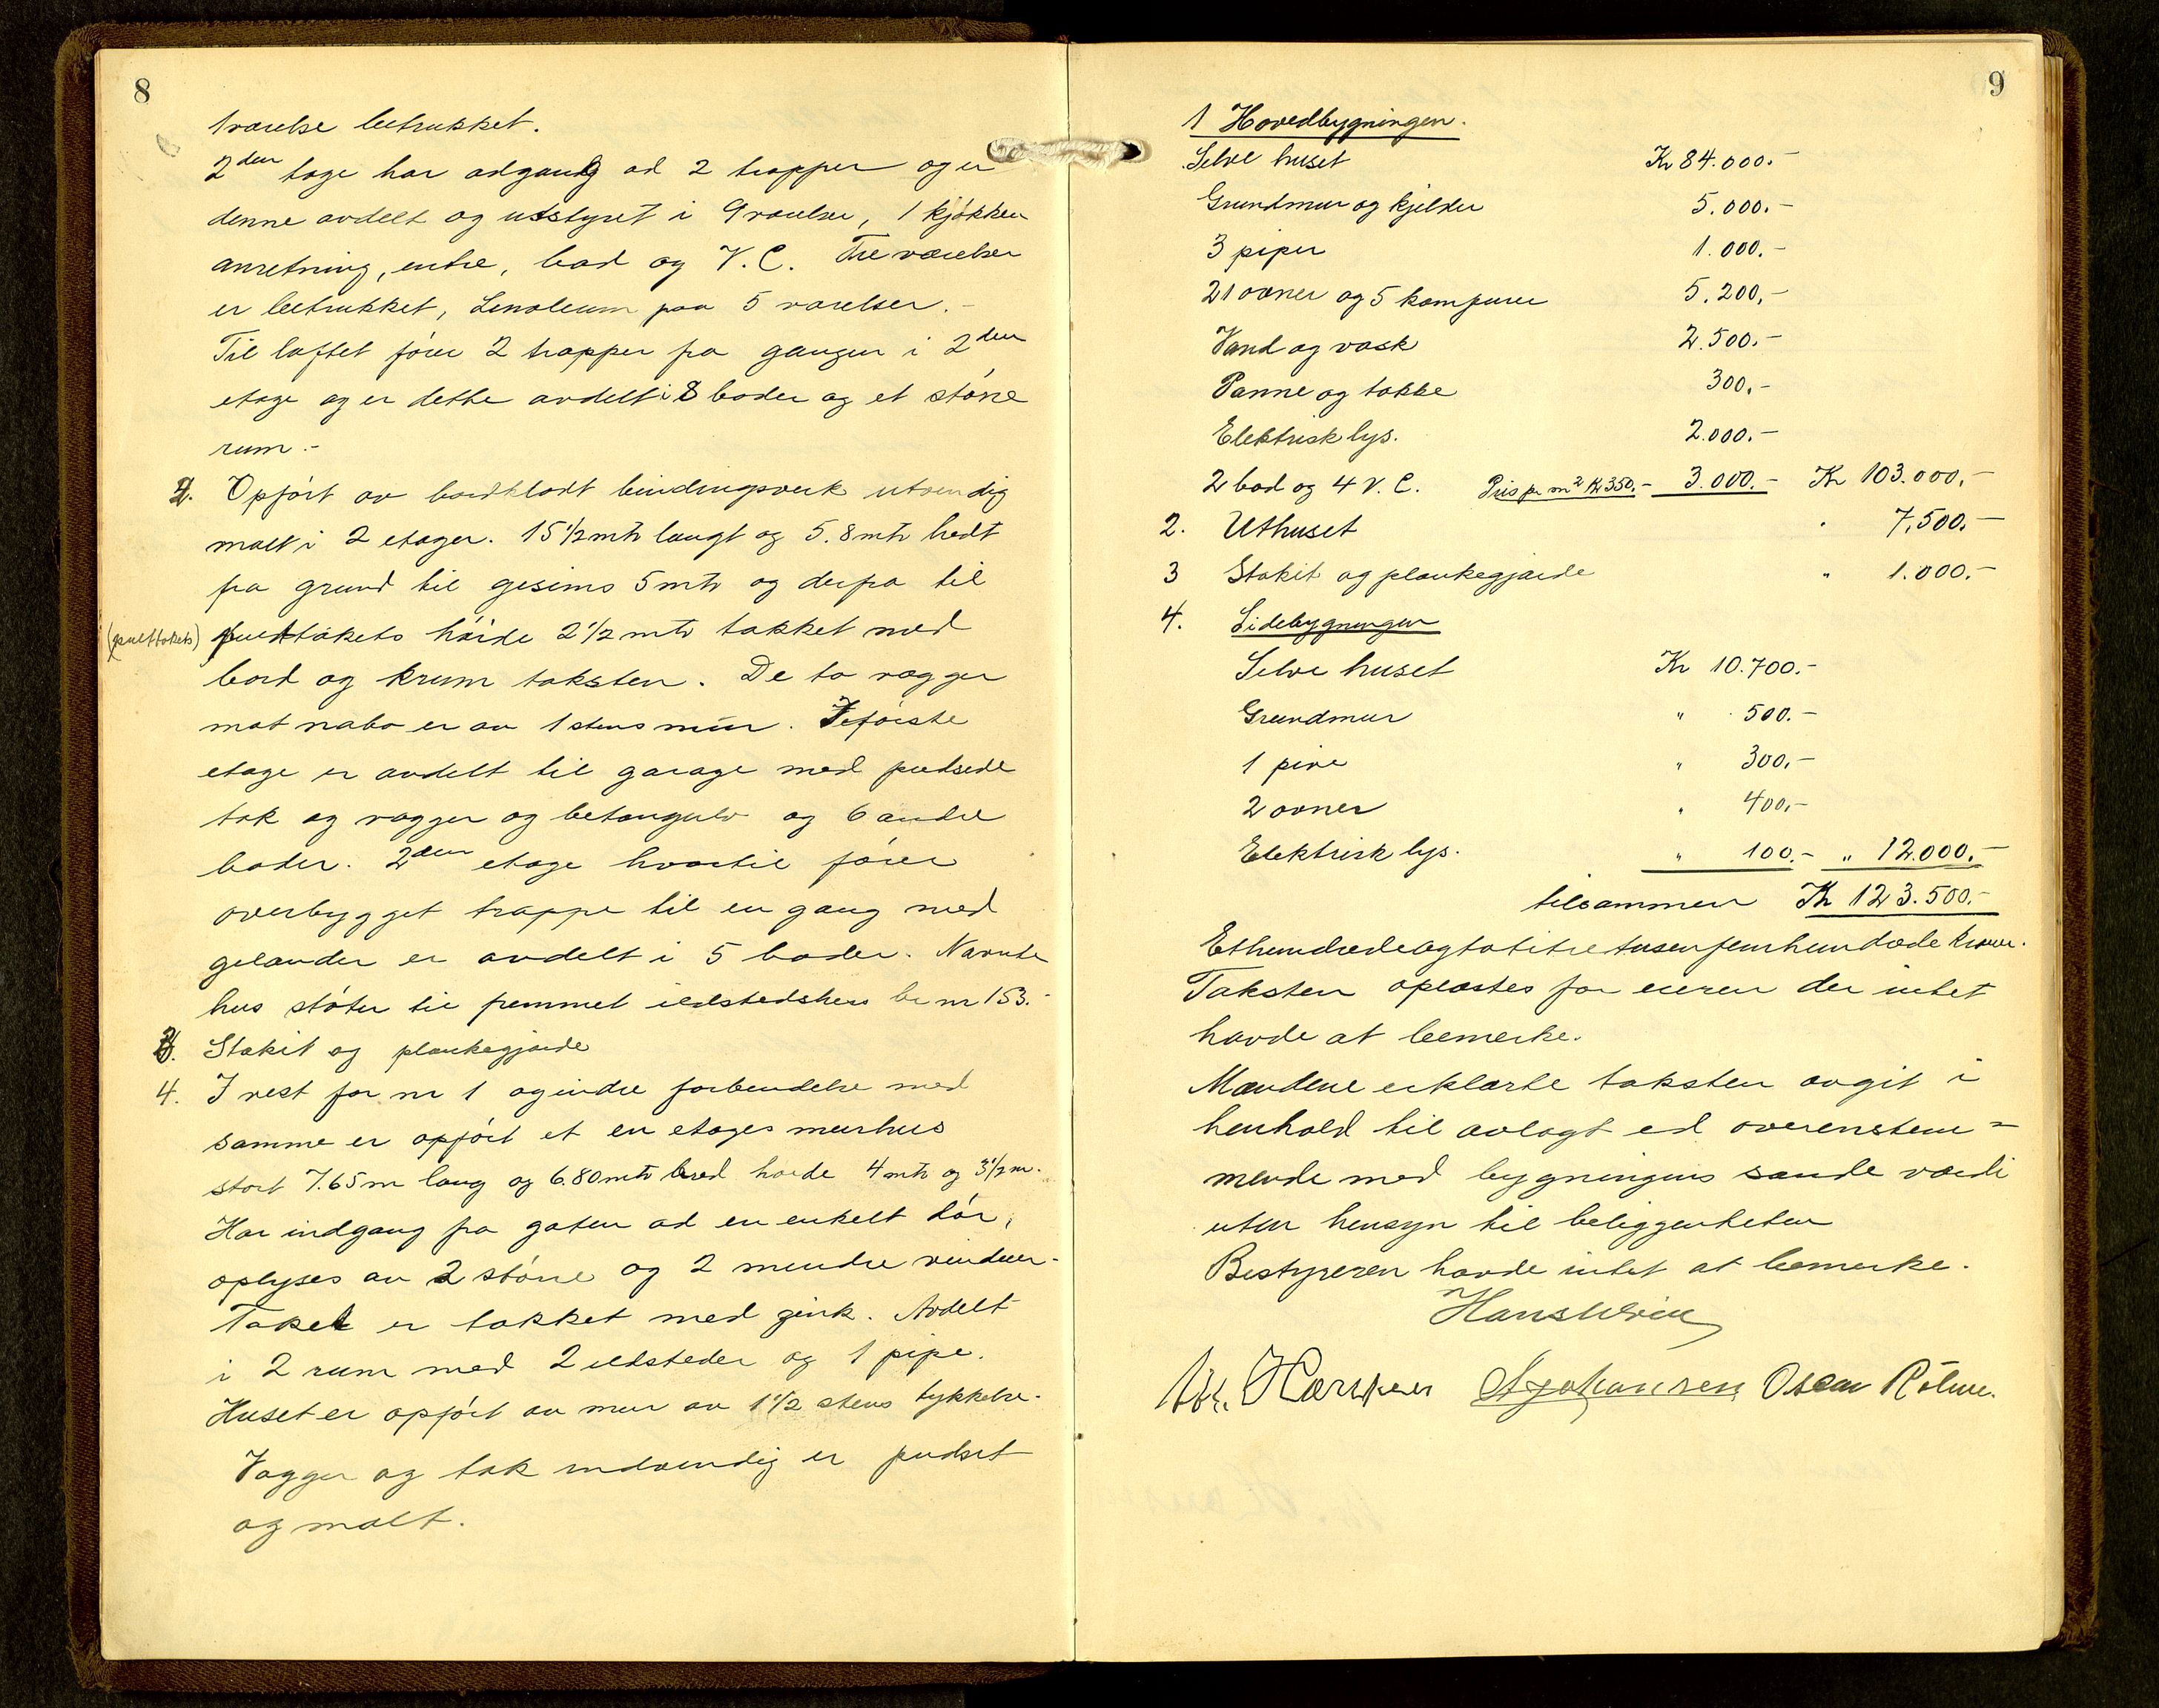 8
1 værelse betrukket.
2den tage har adgang ad 2 trapper og er
denne avdelt og utstyret i 9 værelser, 1 kjøkken
anretning, entre, bad og V.C. Tre værelser
er betrukket, Linoleum paa 5 værelser.-
Til loftet fører 2 trapper fra gangen i 2den
etage og er dette avdelt i 8 boder og et større
rum.-
2. Opført av bordklædt bindingsverk utvendig
malt i 2 etager. 15 1/2 mtr langt og 5.8 mtr bredt
fra grund til gesims 5 mtr og derfra til
(pulttakets) pulttakets høide 2 1/2 mtr tækket med
bord og krum taksten. De to vægger
mot nabo er av 1 stens mur. I første
etage er avdelt til garage med pudsede
tak og vægger og betongulv og 6 andre
boder. 2den etage hvortil fører
overbygget trappe til en gang med
gelænder er avdelt i 5 boder. Nævnte
hus støter til fremmet ildstedshus br nr 153.-
3. Stakit og plankegjærde
4. I vest for nr 1 og indre forbindelse med
samme er opført et en etages murhus
stort 7.65 m lang og 6.80 mtr bred høide 4 mtr og 3 1/2 m.
Har indgang fra gaten ad en enkelt dør,
oplyses av 2 større og 2 mindre vinduer.
Taket er tækket med zink. Avdelt
i 2 rum med 2 ildsteder og 1 pipe.
Huset er opført av mur av 1 1/2 stens tykkelse.
Vægger og tak indvendig er pudset
og malt.
9
1 Hovedbygningen.
Selve huset Kr 84.000.-
Grundmur og kjelder 5.000.-
3 piper 1.000.-
21 ovner og 5 komfurer 5.200,-
Vand og vask 2.500.-
Panne og takke 300,-
Elektrisk lys. 2.000.-
2 bad og 4 V.C. Pris pr m2 Kr 350.- 3.000.- Kr 103.000,-
2. Uthuset " 7,500.-
3 Stakit og plankegjærde " 1.000.-
4. Sidebygningen
Selve huset Kr 10.700.-
Grundmur " 500.-
1 pipe " 300,-
2 ovner " 400,-
Elektrisk lys. " 100.- " 12.000,-
tilsammen Kr 123.500.-
Ethundredeogtotitretusenfemhundrede kroner.
Taksten oplæstes for eieren der intet
havde at bemerke.
Mændene erklærte taksten avgit i
henhold til avlagt ed overenstem=
mende med bygningens sande værdi
uten hensyn til beliggenheten
Bestyreren havde intet at bemerke.
Hans
Johansen Oscar